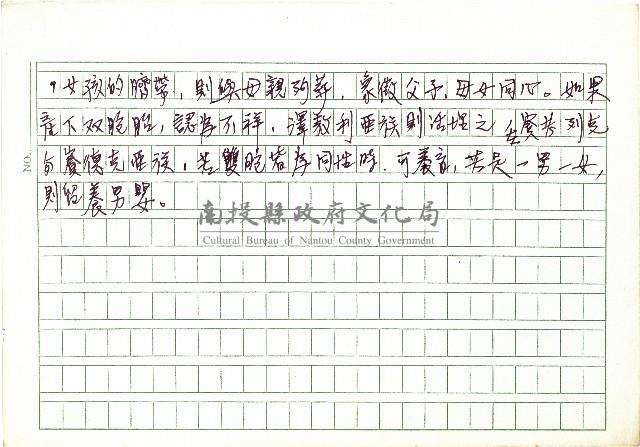 ，女孩的臍帶，則與母親殉葬，象徵父子、母女同心。如果
產下双胞胎，認為不祥，澤敖利亞族則活埋之，
與賽德克亞族，若雙胞皆為同性時，可養育，若是一男一女，
則留養男嬰。
NO.
南投縣政府文化局
Cultural Bureau of Nantou County Government